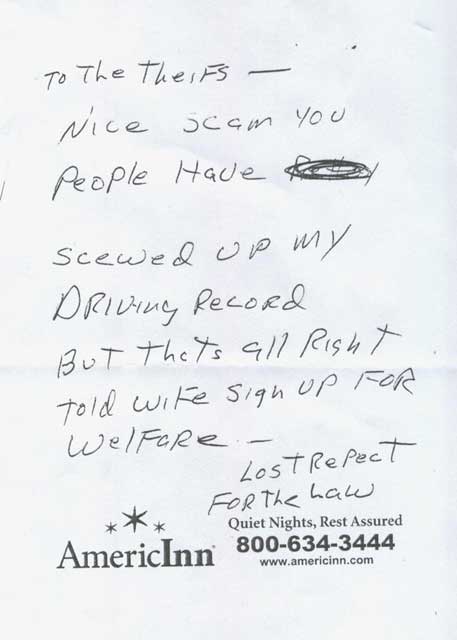 To The TheifS —
Nice scam you
People Have
scewed up my
Driving Record
But thats all Right
told wife sign up For
welfare —
Lost Repect
For the Law
Quiet Nights, Rest Assured
AmericInn
800-634-3444
www.americinn.com